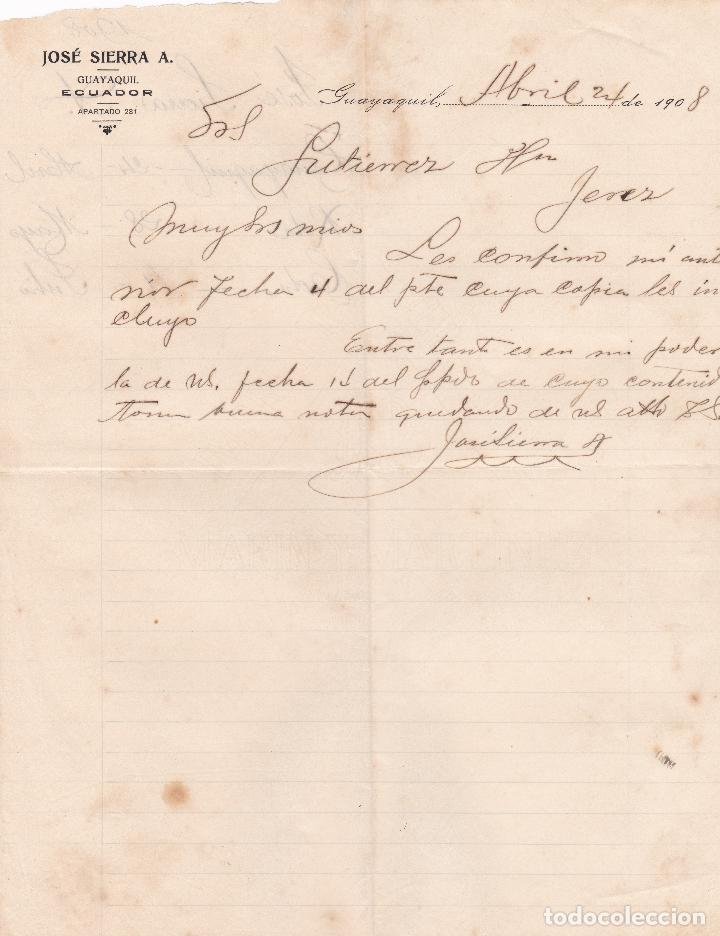 JOSÉ SIERRA A.
GUAYAQUIL
ECUADOR
APARTADO 281
Guayaquil, Abril 24 de 1908
Srs
Gutierrez Hnos
Jerez
Muy Srs mios
Les confirmo mi ante
rior fecha 4 del pte cuya copia les in
cluyo
Entre tanto es en mi poder
la de us. fecha 14 del ppdo de cuyo contenid
tomo buena nota quedando de us atto SS
José Sierra A
todocoleccion.net